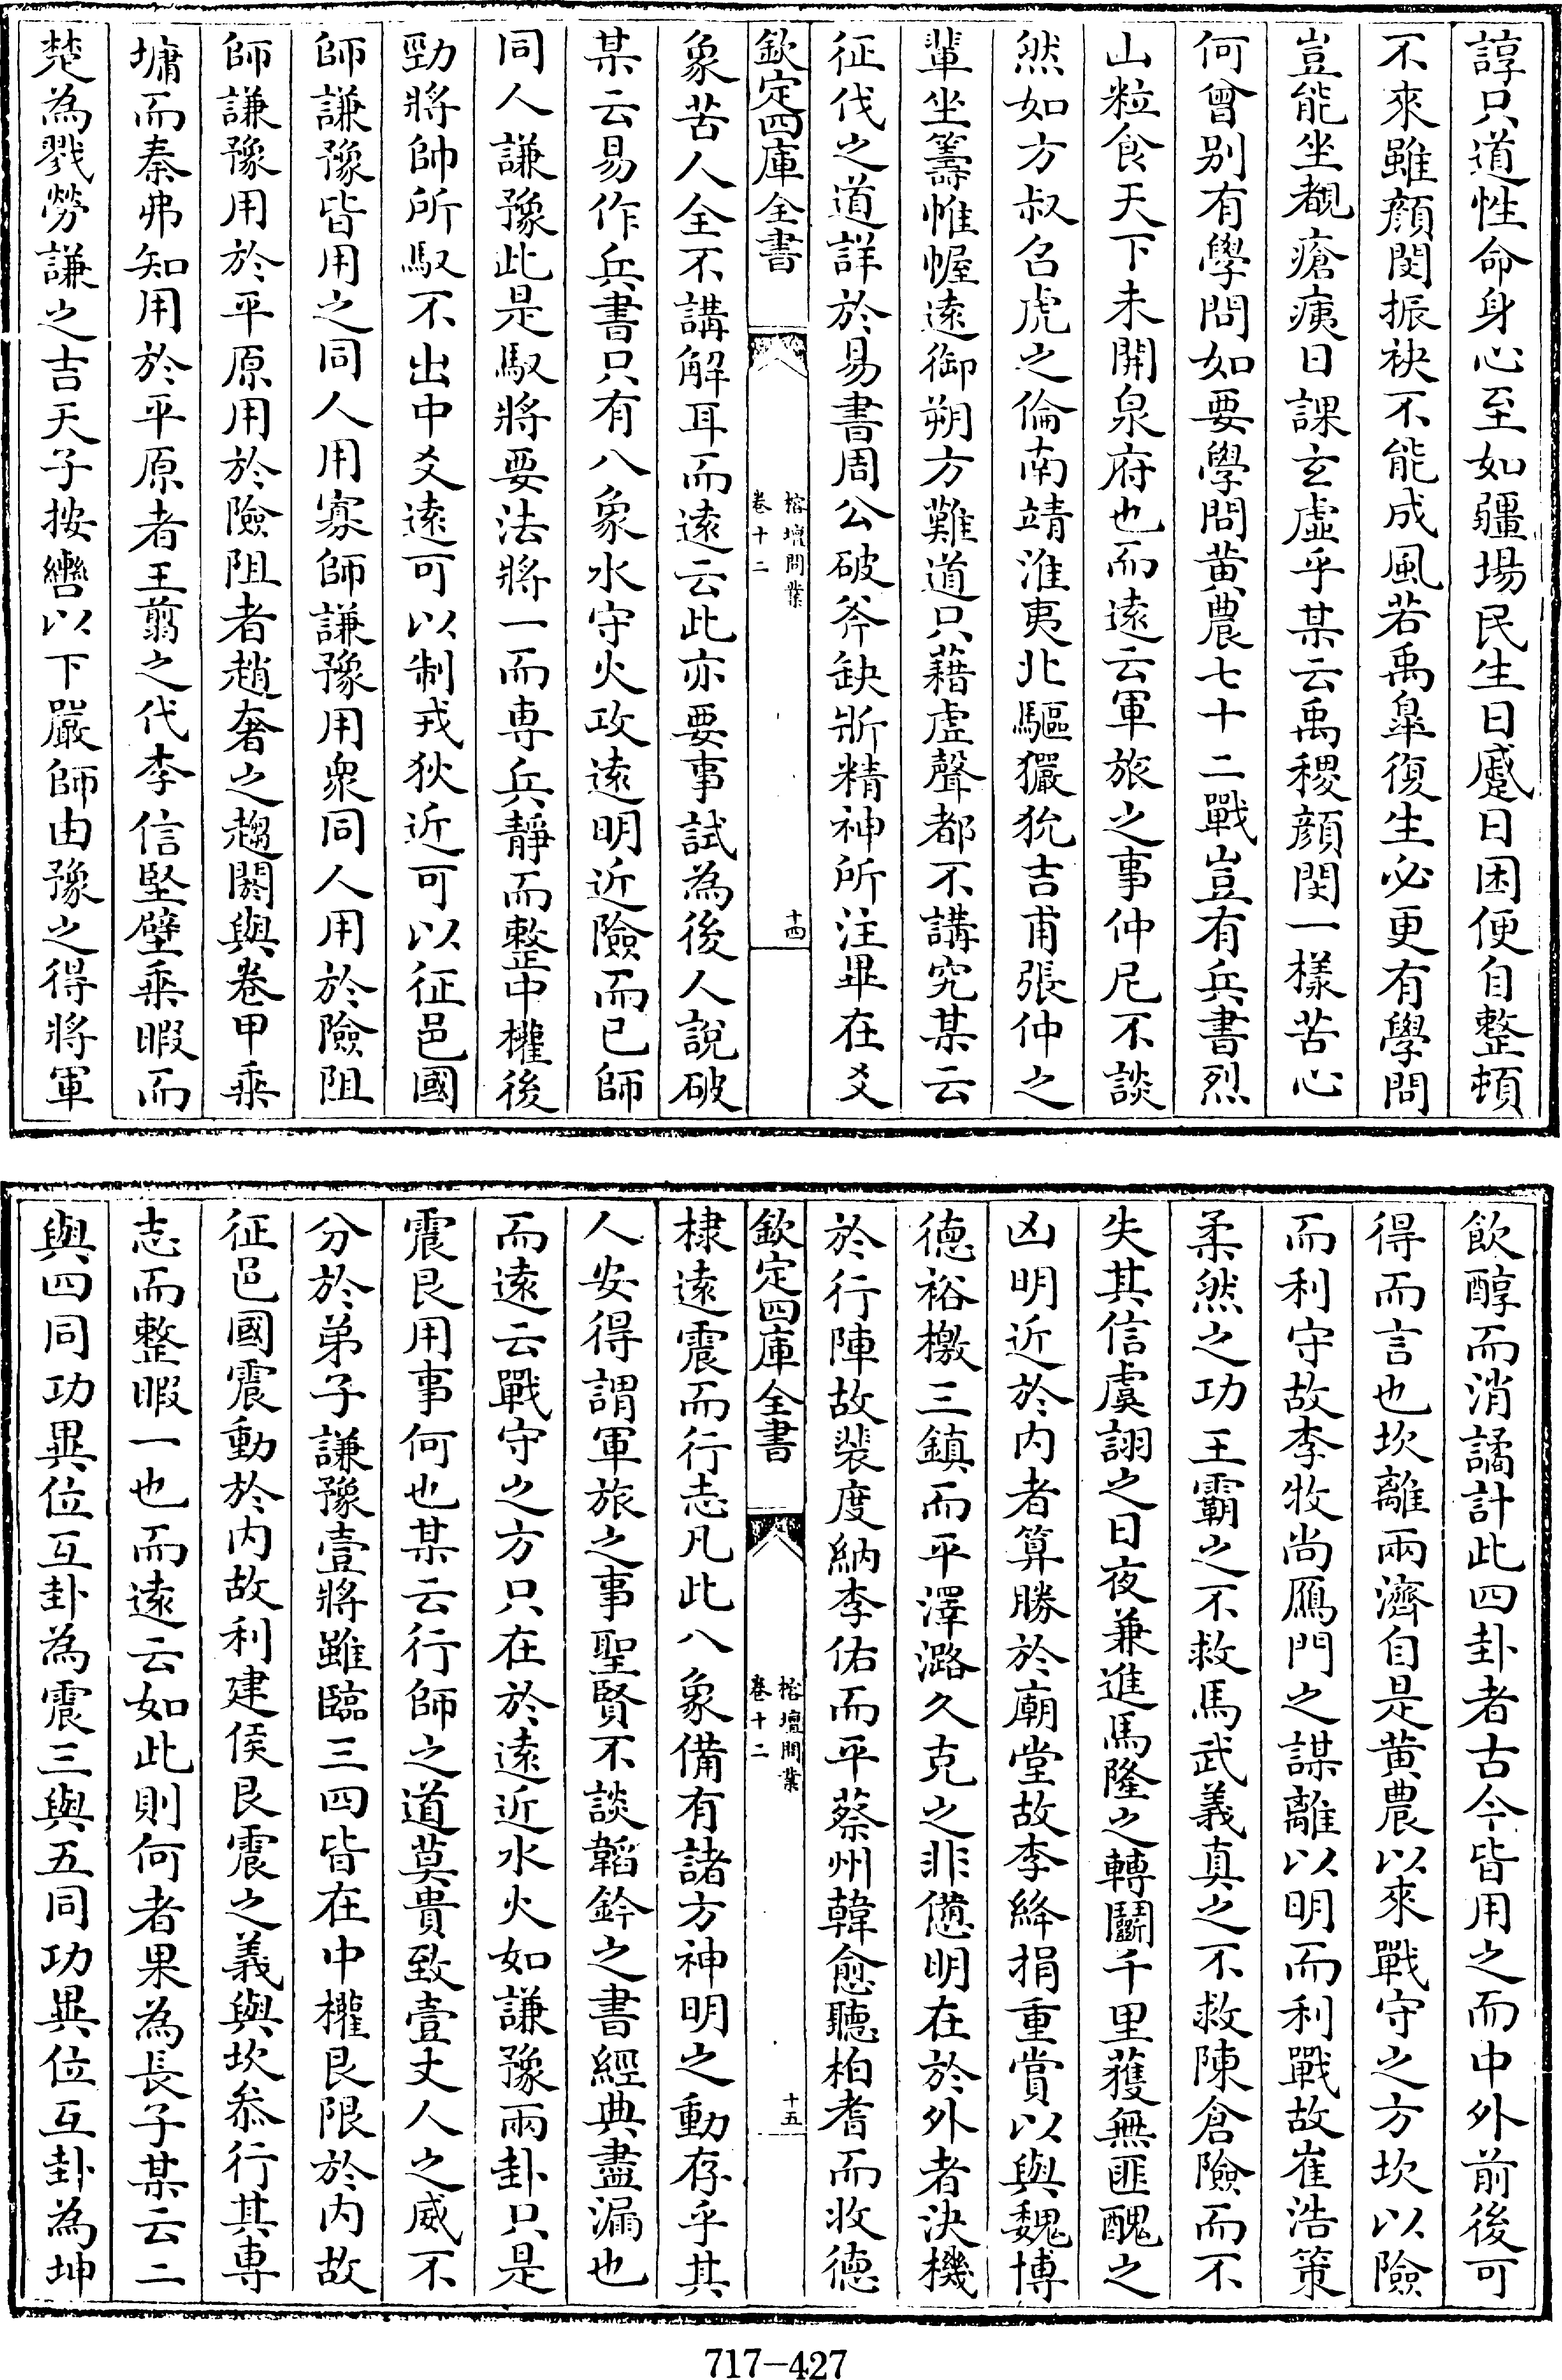 諄只道性命身心至如疆場民生日蹙日困便自整頓
不來雖顔閔振袂不能成風若禹臯復生必更有學問
豈能坐覩瘡痍日課玄虚乎某云禹稷顔閔一様苦心
何曾别有學問如要學問黄農七十二戰豈有兵書烈
山粒食天下未開泉府也而逺云軍旅之事仲尼不談
然如方叔召虎之倫南靖淮夷北驅玁狁吉甫張仲之
輩坐籌帷幄逺御朔方難道只藉虚聲都不講究某云
征伐之道詳於易書周公破斧缺斨精神所注畢在爻
欽定四庫全書
榕壇問業
卷十二
十四
象苦人全不講解耳而逺云此亦要事試為後人說破
某云易作兵書只有八象水守火攻逺明近險而已師
同人謙豫此是馭將要法將一而専兵靜而整中權後
勁將帥所馭不出中爻逺可以制戎狄近可以征邑國
師謙豫皆用之同人用寡師謙豫用衆同人用於險阻
師謙豫用於平原用於險阻者趙奢之趨閼與卷甲乘
墉而秦弗知用於平原者王翦之代李信堅壁乘暇而
楚為戮勞謙之吉天子按轡以下嚴師由豫之得將軍
飲醇而消譎計此四卦者古今皆用之而中外前後可
得而言也坎離兩濟自是黄農以來戰守之方坎以險
而利守故李牧尚鴈門之謀離以明而利戰故崔浩策
柔然之功王霸之不救馬武義真之不救陳倉險而不
失其信虞詡之日夜兼進馬隆之轉鬭千里獲無匪醜之
凶明近於内者算勝於廟堂故李絳捐重賞以與魏博
德裕檄三鎮而平澤潞久克之非憊明在於外者決機
於行陣故裴度納李佑而平蔡州韓愈聽柏耆而收德
欽定四庫全書
榕壇問業
卷十二
十五
棣逺震而行志凡此八象備有諸方神明之動存乎其
人安得謂軍旅之事聖賢不談韜鈐之書經典盡漏也
而逺云戰守之方只在於逺近水火如謙豫兩卦只是
震艮用事何也某云行師之道莫貴致壹丈人之威不
分於弟子謙豫壹將雖臨三四皆在中權艮限於内故
征邑國震動於内故利建侯艮震之義與坎叅行其専
志而整暇一也而逺云如此則何者果為長子某云二
與四同功異位互卦為震三與五同功異位互卦為坤
717-427